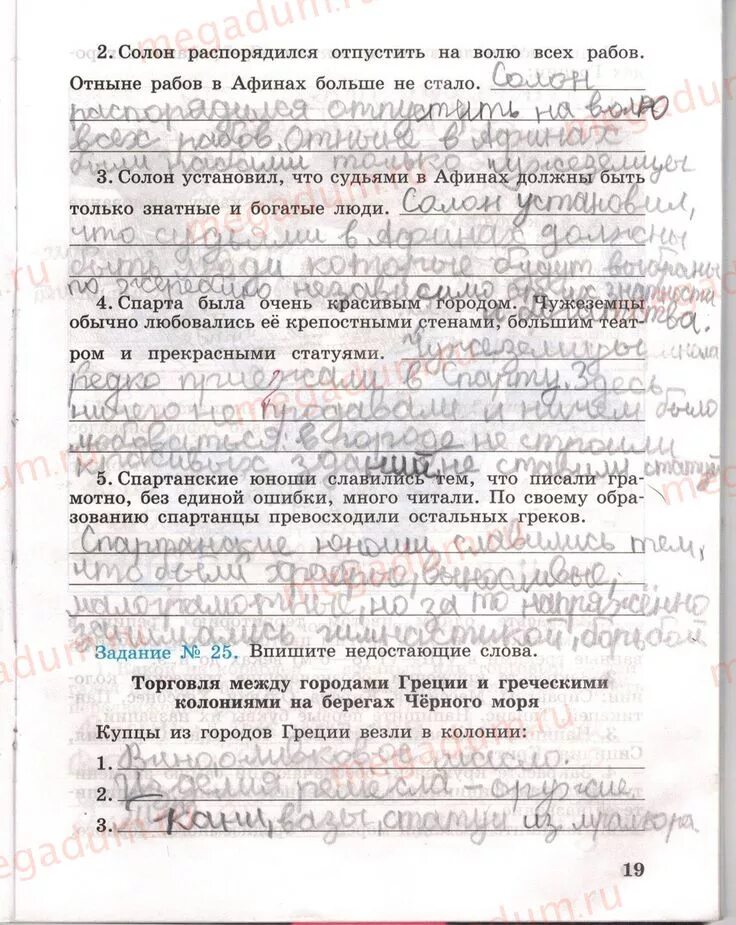 2. Солон распорядился отпустить на волю всех рабов.
Отныне рабов в Афинах больше не стало. Солон
распорядился отпустить на волю
всех рабов. Отныне в Афинах
были рабами только чужеземцы
3. Солон установил, что судьями в Афинах должны быть
только знатные и богатые люди. Солон установил,
что судьями в Афинах должны
быть люди которые будут выбраны
по жеребию независимо от их знатности
и богатства.
4. Спарта была очень красивым городом. Чужеземцы
обычно любовались её крепостными стенами, большим теат-
ром и прекрасными статуями. Чужеземцы
редко приезжали в Спарту. Здесь
ничего не продавали и ничем было
любоваться в городе не строили
красивых зданий, не ставили статуй
5. Спартанские юноши славились тем, что писали гра-
мотно, без единой ошибки, много читали. По своему обра-
зованию спартанцы превосходили остальных греков.
Спартанские юноши славились тем,
что были храбрые, выносливые,
малограмотные, но за то напряжённо
занимались гимнастикой, борьбой
Задание № 25. Впишите недостающие слова.
Торговля между городами Греции и греческими
колониями на берегах Чёрного моря
Купцы из городов Греции везли в колонии:
1. Вино оливковое масло.
2. Изделия ремесла – оружие
3. Ткани, вазы, статуи из мрамора.
19
megadum.ru